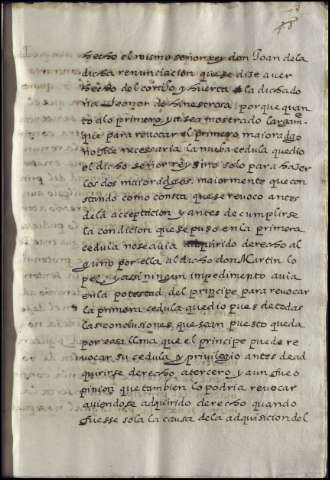 hecho el mismo señor rey don Joan de la
dicha renunciacion que se dise auer
hecho del cortijo y huerta a la dicha do
ña Leonor de hinestrosa, porque quan
to a lo primero ya sea mostrado largam
que para revocar el primero maioradgo
no fue necessaria la nueba cedula que dio
el dicho señor rey sino solo para haser
los dos maioradgos, maiormente que con
stando como consta que se revoco antes
de la acceptacion y antes de cumplirse
la condicion que se puso en la primera
cedula no se auia adquirido derecho al
guno por ella al dicho don Martin lo
pez, y assi ningun impedimento auia
en la potestad del principe para revocar
la primera cedula que dio pues de todas
las conclusiones, que sean puesto queda
por casi llma que el principe puede re
vocar su cedula y privilegio antes de ad
quirirse derecho a tercero y aun fue o
pinion que tambien lo podria revocar
auiendose adquirido derecho quando
fuesse sola la causa de la adquisicion del